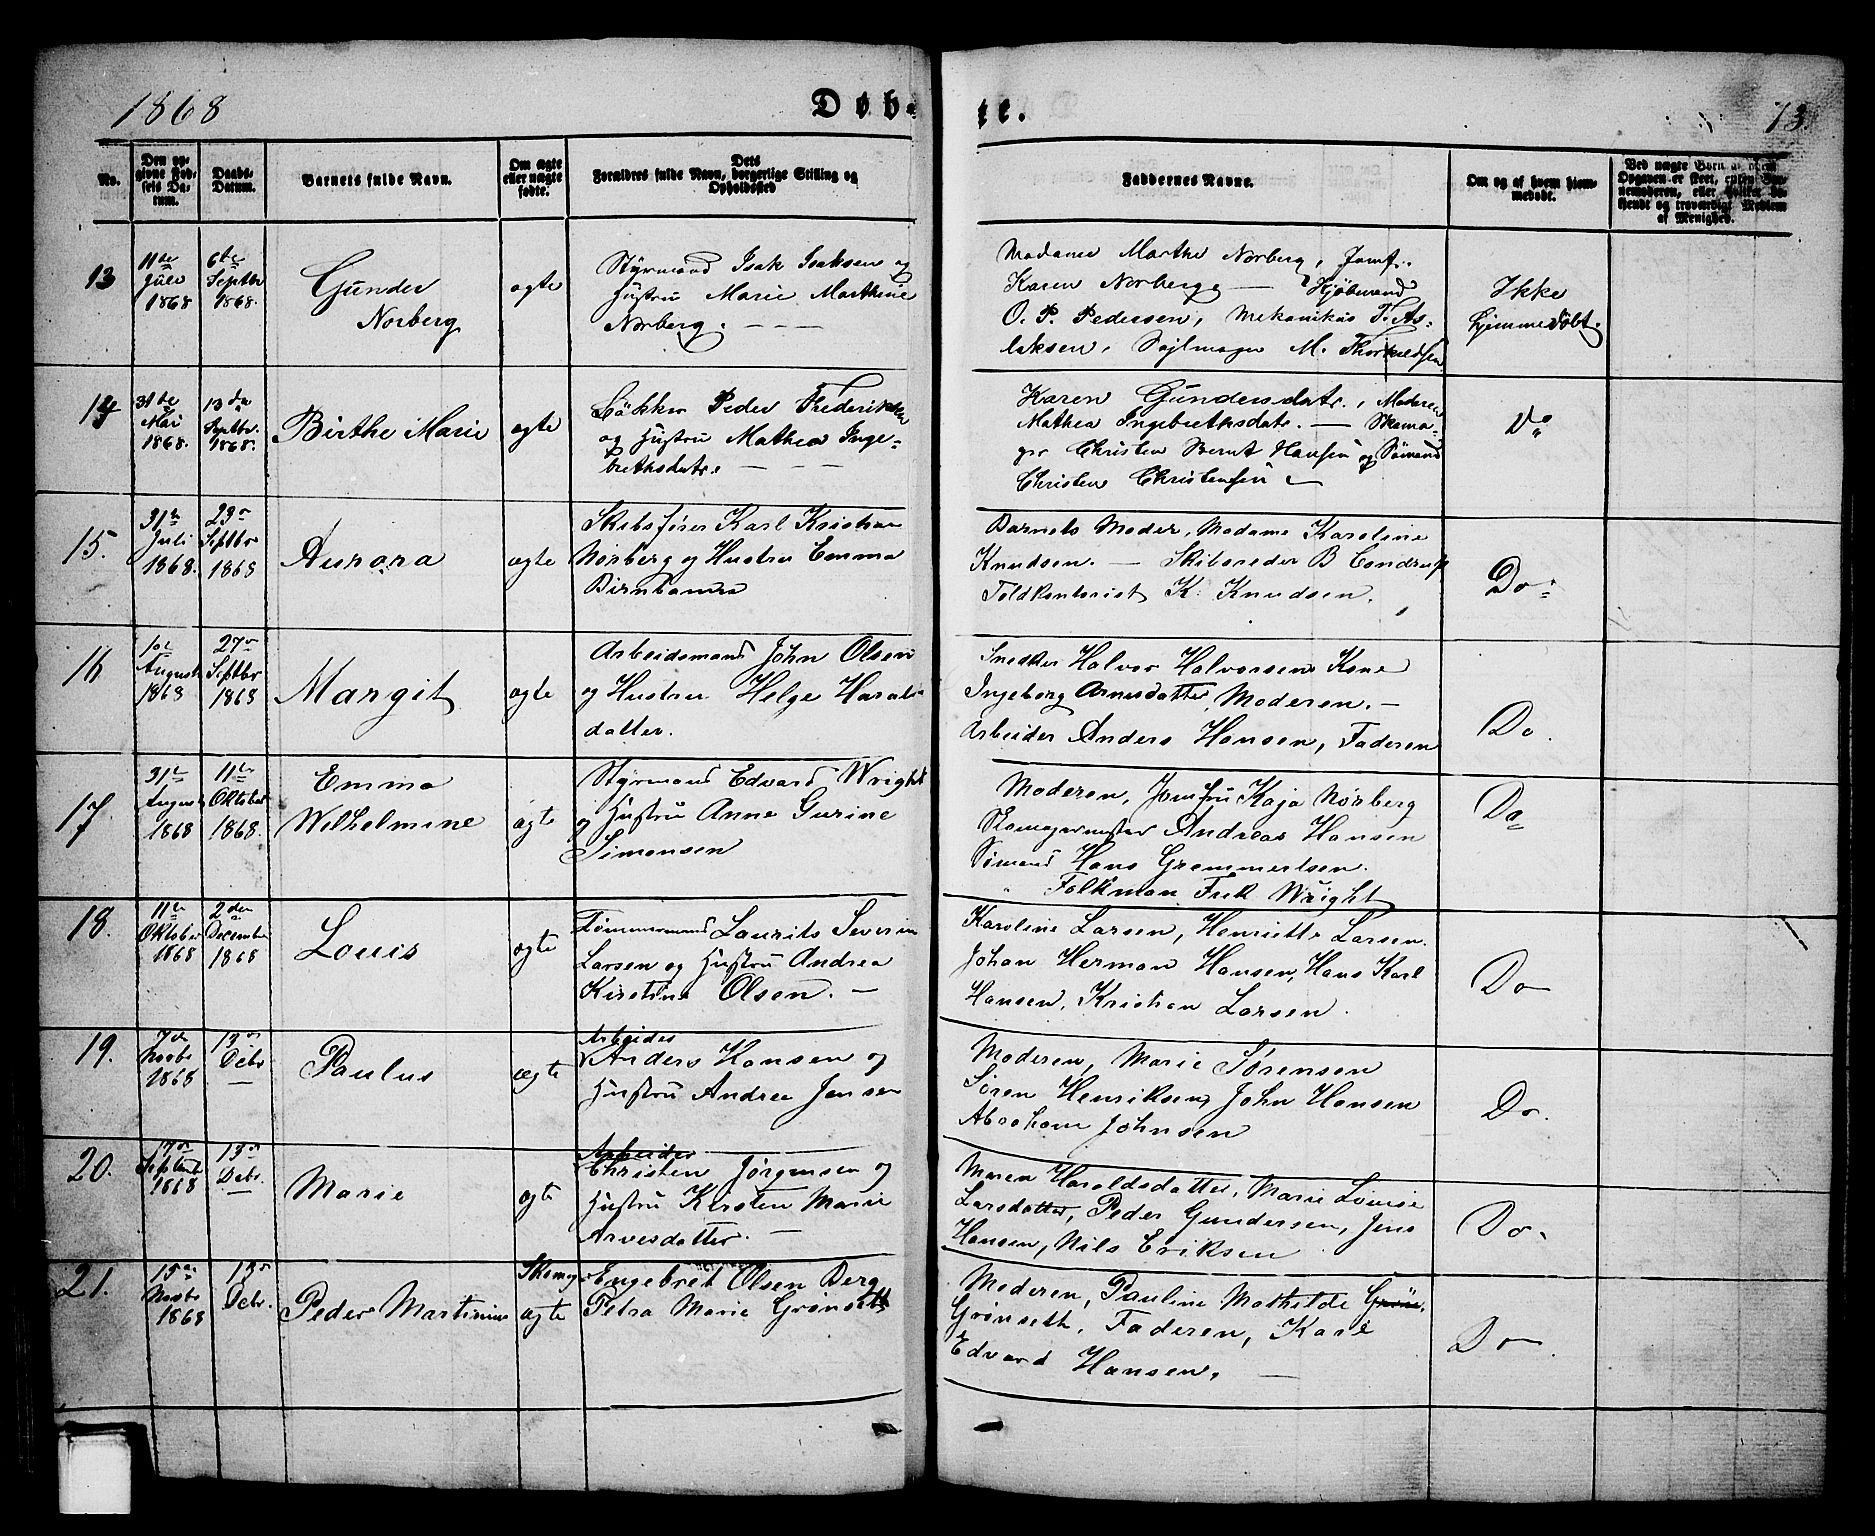 1868
Døb-
te.
73.
No.
Den op-
givne Fød-
sels Da-
tum.
Daabs-
Datum.
Barnets fulde Navn.
Om ægte
eller uægte
fødte.
Dets
Forældres fulde Navn, borgerlige Stilling og
Opholdssted
Faddernes Navne.
Om og af hvem hjem-
medøbt.
Ved uægte Børn at hvem
Opgaven er skeet, enten Bar-
nemoderen, eller hvilket be-
kendt og troværdigt Medlem
af Menighed.
13
11de
Juli
1868
6te
Septbr
1868.
Gunder
Norberg
ægte
Styrmand Isak Isaksen og
Hustru Marie Marthine
Norberg. — — —
Madame Marthe Norberg, Jomf.
Karen Norberg — Kjøbmand
O. P. Pedersen, Mekanikus T. As-
laksen, Sejlmager M. Thorkildsen
Ikke
hjemmedøbt.
14
31de
Mai
1868.
13de
Septbr.
1868.
Birthe Marie
ægte
Peder Frederiksen
og Hustru Mathea Inge-
brethsdatr. — —
Karen Gundersdatr., Moderen
Mathea Ingebrethsdatr. — Skoma-
ger Christen Bernt Hansen og Sømand
Christen Christensen —
Do
15.
31te
Juli
1868.
23de
Septbr
1868
Aurora
ægte
Skibsfører Karl Kristian
Norberg og Hustru Emma
Birnbaum
Barnets Moder, Madame Karoline
Knudsen. — Skibsreder B Condrup
Toldkontorist K. Knudsen.
Do
16
1ste
August
1868
27de
Septbr
1868
Margit
ægte
Arbeidsmand John Olsen
og Hustru Helge Harals-
datter.
Snedker Halvor Halvorsens Kone
Ingeborg Arnesdatter, Moderen. —
Arbeider Anders Hansen, Faderen
Do.
17.
31te
August
1868
11te
Oktober
1868.
Emma
Wilhelmine
ægte
Styrmand Edvard Wright
og Hustru Anne Gurine
Simonsen
Moderen, Jomfru Kaja Norberg
Skomagermester Andreas Hansen
Sømand Hans Grammertsen.
Folkman Fredk Wright
Do
18.
11te
Oktober
1868
2den
December
1868
Louis
ægte
Tømmermand Laurits Severin
Larsen og Hustru Andrea
Kirstine Olsen. —
Karoline Larsen, Henriette Larsen.
Johan Herman Hansen, Hans Karl
Hansen, Kristian Larsen.
Do
19.
7de
Novbr
1868
13de
Dcbr
—
Paulus
ægte
Arbeider
Anders Hansen og
Hustru Andrea Jensen
Moderen, Marie Sørensen
Søren Henriksen, John Hansen
Abraham Johnsen
Do.
20.
17de
Septbr
1868
13de
Dcbr.
—
Marie
ægte
Arbeider
Christen Jørgensen og
Hustru Kirsten Marie
Arvesdatter. —
Maren Haraldsdatter, Marie Lovise
Larsdatter, Peder Gundersen, Jens
Hansen, Nils Eriksen
Do.
21.
15de
Novbr
1868
13de
Dcbr.
Peder Martinius
ægte
Skomager Engebret Olsen Berg
Petra Marie Grønseth
Moderen, Pauline Mathilde Grøn.
Grønseth, Faderen, Karl
Edvard Hansen. —
Do